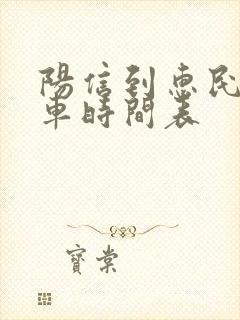 陽信到惠民
車時間表
寶棠